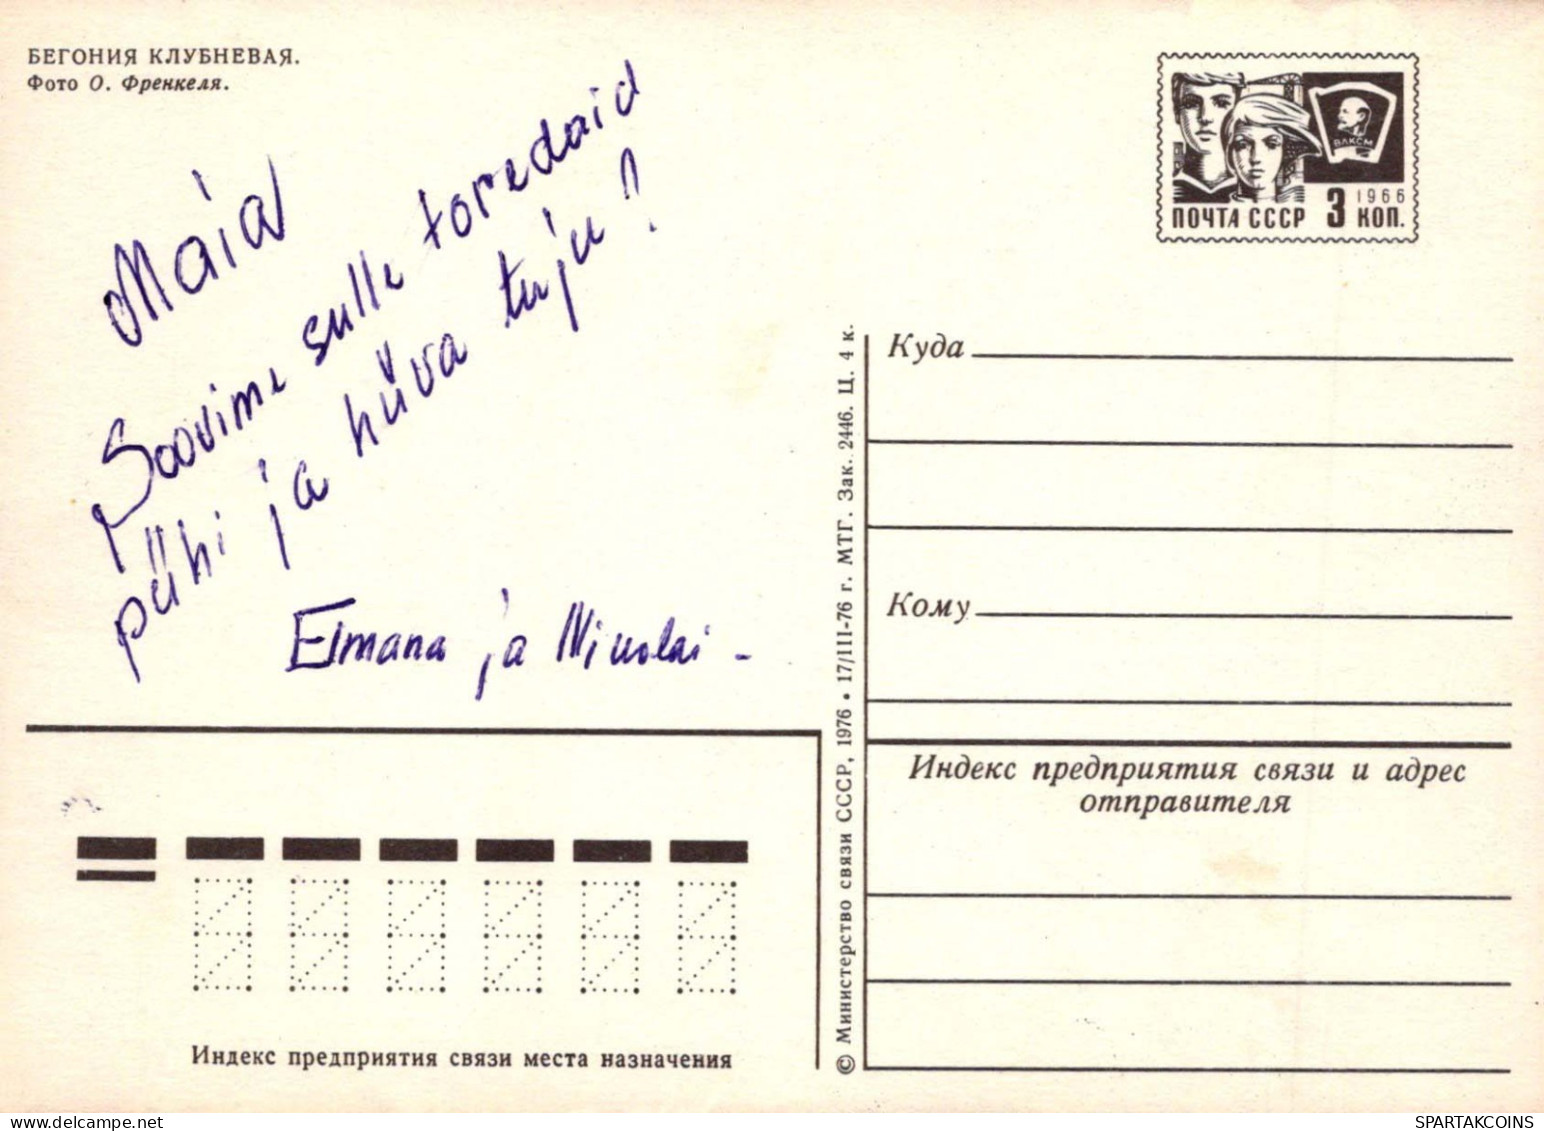 БЕГОНИЯ КЛУБНЕВАЯ.
Фото О. Френкеля.
Maia
Soovime sulle toredaid
pühi ja hüva tuju!
Elmana ja Nikolai -
ВЛКСМ
1966
ПОЧТА СССР 3 КОП.
Куда
Кому
Индекс предприятия связи и адрес
отправителя
© Министерство связи СССР, 1976 • 17/III-76 г. МТГ. Зак. 2446. Ц. 4 к.
Индекс предприятия связи места назначения
SPARTAKCOINS